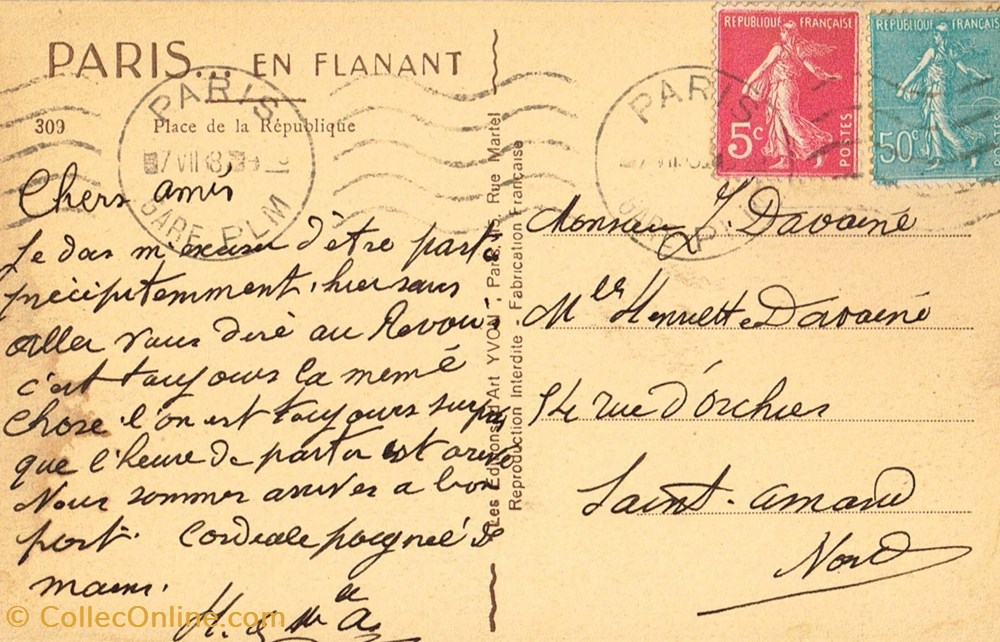 PARIS... EN FLANANT
309 Place de la République
PARIS
7 VII 3
GARE PLM
Chers amis
Je dois m'excuser d'être parti
précipitemment, hier sans
aller vous dire au Revoir,
c'est toujours la même
chose l'on est toujours surpris
que l'heure de partir est arrivé
Nous sommes arrivés a bon
port. Cordiale poignée de
mains.
Les Editions d'Art YVON, Paris, 15, Rue Martel
Reproduction Interdite - Fabrication Française
REPUBLIQUE FRANÇAISE
5c
POSTES
REPUBLIQUE FRANÇAIS
50c
PARIS
GARE PLM
Monsieur J. Davaine
Mlle Henriette Davaine
rue d'Orchies
Saint-Amand
Nord
© CollecOnline.com